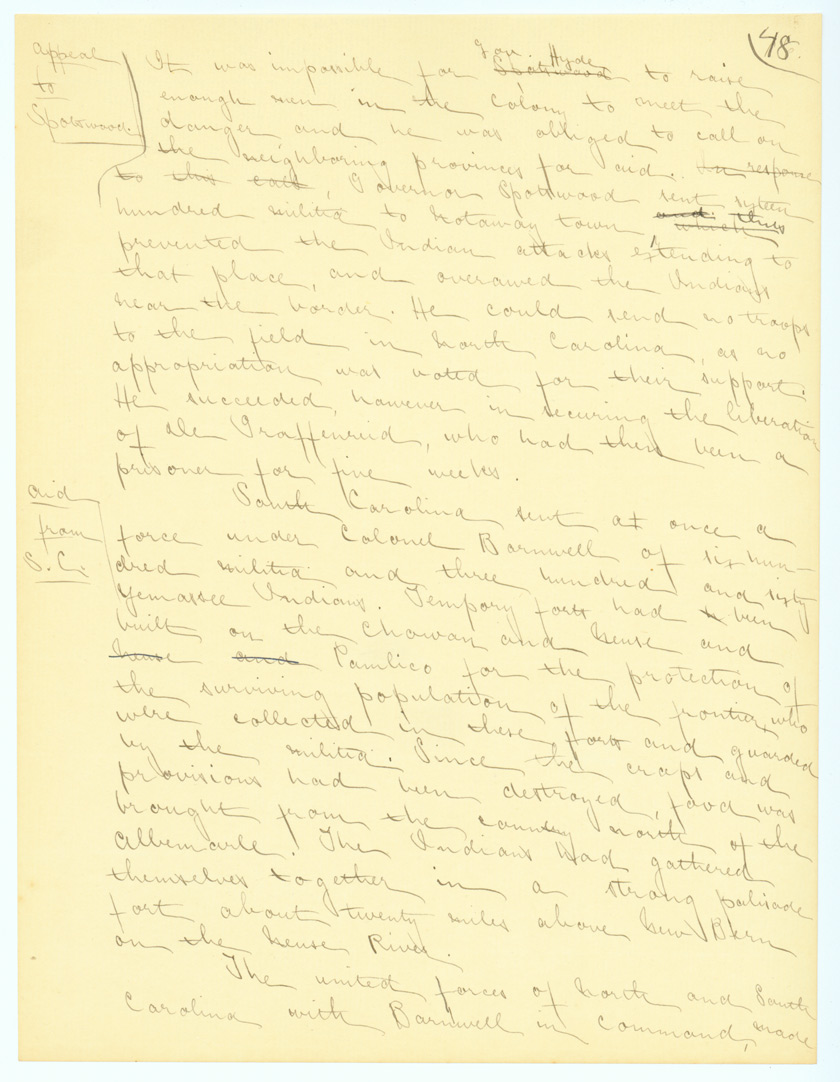 48
appeal
to
Spotswood.
Gov. Hyde
It was impossible for Spotswood to raise
enough men in the colony to meet the
danger and he was obliged to call on
the neighboring provinces for aid. In response
to this call, Governor Spotswood sent sixteen
hundred militia to Notaway town, and thus
which
prevented the Indian attacks extending to
that place, and overawed the Indians
near the border. He could send no troops
to the field in North Carolina, as no
appropriation was voted for their support.
He succeeded, however in securing the liberation
of De Graffenreid, who had then been a
prisoner for five weeks.
aid
from
S. C.
South Carolina sent at once a
force under Colonel Barnwell of six hun-
dred militia and three hundred and sixty
Yemassee Indians. Tempory forts had been
built on the Chowan and Neuse and
Neuse and Pamlico for the protection of
the surviving population of the frontier, who
were collected in these forts and guarded
by the militia. Since the crops and
provisions had been destroyed, food was
brought from the country north of the
Albemarle. The Indians had gathered
themselves together in a strong palisade
fort about twenty miles above New Bern
on the Neuse River.
The united forces of North and South
Carolina with Barnwell in command, made